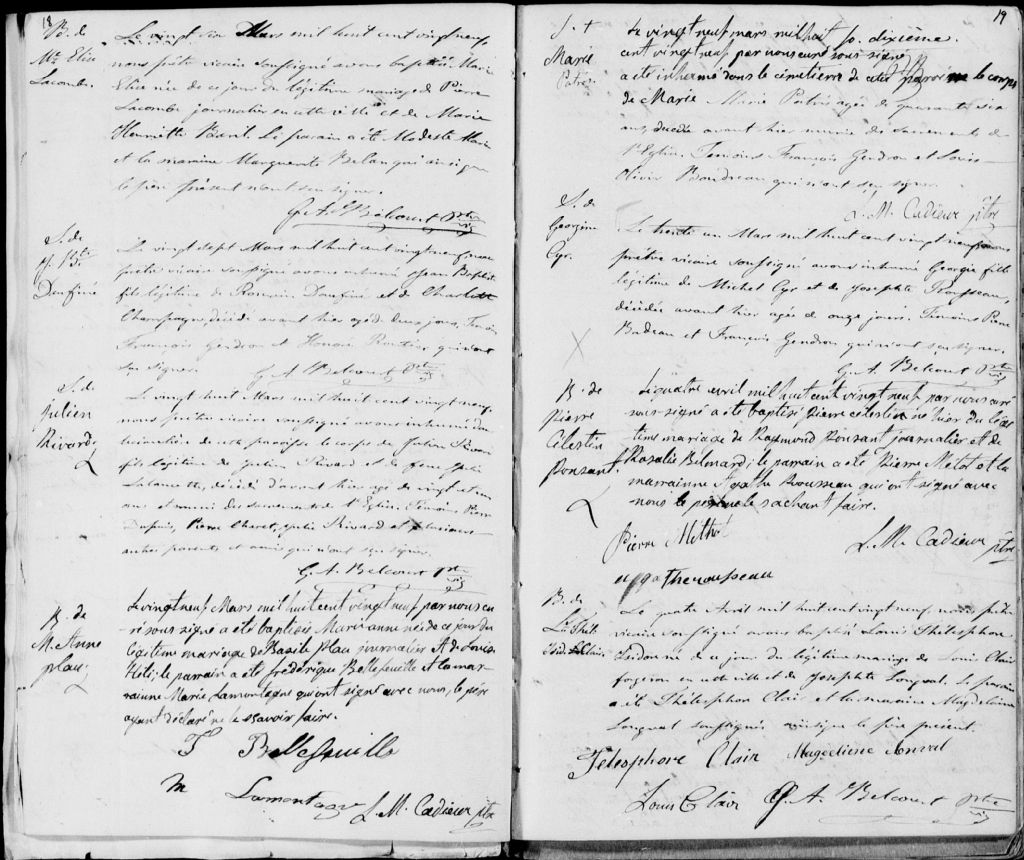 18
B. de
Me Elise
Lacombe.
Le vingt six Mars mil huit cent vingt neuf,
nous prêtre vicaire soussigné avons baptisé Marie
Elise née de ce jour du légitime mariage de Pierre
Lacombe journalier en cette ville et de Marie
Henriette Le parain a été Modeste
et la maraine Marguerite qui ainsi que
le père présent n'ont su signer.
G. A. Belcourt Ptre
S. de
J. Bte
Daufiné
Le vingt sept Mars mil huit cent vingt neuf nous
prêtre vicaire soussigné avons inhumé Jean Baptiste
fils légitime de Romain Daufiné et de Charlotte
Champagne, décédé avant hier agé de deux jours. Temoins
François Gendron et Honoré qui n'ont
su signer. G. A. Belcourt Ptre
S. de
Julien
Rivard
Le vingt huit Mars mil huit cent vingt neuf,
nous prêtre vicaire soussigné avons inhumé dans
le cimetière de cette paroisse le corps de Julien Rivard
fils légitime de Julien Rivard et de feue
décédé d'avant hier agé de vingt et un
ans et muni des sacrements de l'Eglise. Temoins Pierre
Dupuis, Pierre Julien Rivard et plusieurs
autres parents et amis qui n'ont su signer.
G. A. Belcourt ptre
B. de
M. Anne
plau
Le vingt neuf Mars mil huit cent vingt neuf par nous cu-
ré sous signé a été baptisée Marie anne née de ce jour du
légitime mariage de Basile Plau journalier & de Louise
Héli; le parrain a été frédérique Bellefeuille et la mar-
rainne Marie Lamontagne qui ont signé avec nous, le père
ayant déclaré ne le savoir faire.
F Bellefeuille
m Lamontagne L. M. Cadieux ptre
19
S. +
Marie
Patri
Le vingt neuf mars mil huit fo. dixième.
cent vingt neuf par nous curé sous signé
a été inhumé dans le cimetière de cette paroisse le corps
de Marie Marie Patri agée de quarante six
ans, décédée avant hier munie des sacrements de
l'Eglise. Temoins François Gendron et Louis
Olivier Boudreau qui n'ont su signer.
L. M. Cadieux ptre
S. de
Georgine
Cyr.
Le trente un Mars mil huit cent vingt neuf nous
prêtre vicaire soussigné avons inhumé Georgie fille
légitime de Michel Cyr et de Josephte Rousseau,
décédée avant hier agée de onze jours. Temoins Pierre
Budreau et François Gendron qui n'ont su signer.
G. A. Belcourt Ptre
B. de
Pierre
Célestin
Ponsant
Le quatre avril mil huit cent vingt neuf par nous curé
sous signé a été baptisé Pierre celestin né hier du légi
time mariage de Raymond Ponsant journalier et de
Rosalie Bélmard; le parrain a été Pierre Métot et la
marrainne Agathe Rousseau qui ont signé avec
nous le père ne le sachant faire.
Pierre Methot
L. M. Cadieux ptre
agathe rousseau
B. de
Ls Thél.
Clair
Le quatre Avril mil huit cent vingt neuf, nous prêtre
vicaire soussigné avons baptisé Louis Thélesphore
né de ce jour du légitime mariage de Louis Clair
forgeron en cette ville et de Josephte Longval. Le parrain
a été Thélesphore Clair et la maraine Magdelaine
Longval soussignés ainsi que le père présent.
Télesphore Clair Magedliene Lonval
Louis Clair G. A. Belcourt ptre